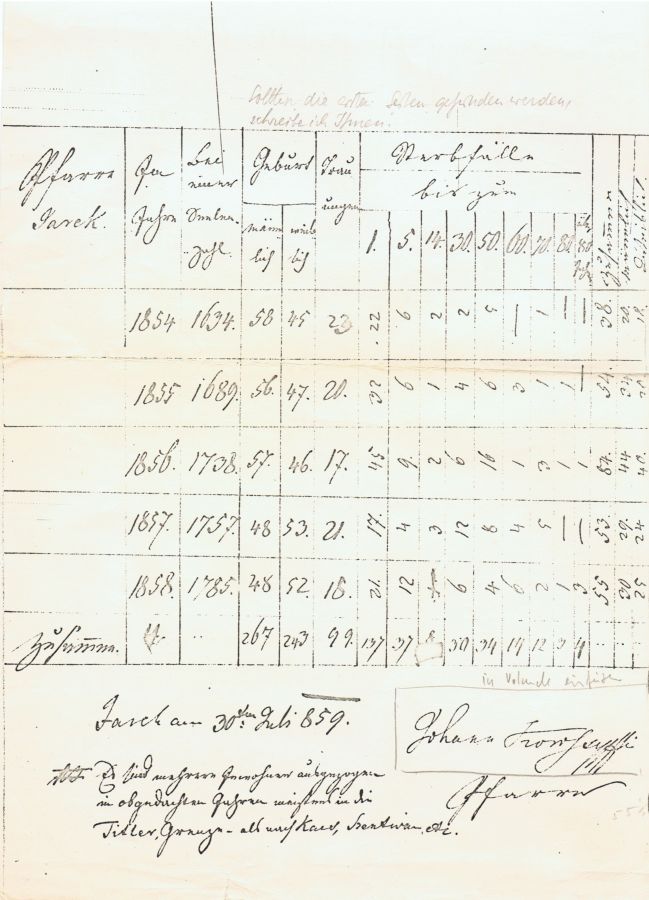 Sollten die ersten Seiten gefunden werden,
schreibe ich Ihnen!
Pfarre Jarek.
Im Jahre
Bei einer Seelenzahl.
Geburt
männlich
weiblich
Trauungen
Sterbfälle
bis zum
1. 5. 14. 30. 50. 60. 70. 80. über 80 Jahre
1854 1634. 58 45 23 22. 6 2 2 5 — 1 — — 38 20 18.
1855 1689. 56. 47. 20. 32 6 1 4 6 3 1 1 — 54.
1856. 1738. 57. 46. 17. 45 9. 2 6 16 1 3 1 1 84. 44 40.
1857. 1757. 48 53. 21. 17. 4 3 12 8 4 5 — — 53. 29. 24
1858. 1785. 48 52 18. 21. 12 6 4 6 2 1 3 55
Zusammen. 267 243 99. 137 37 8 30 34 14 12 3 4
in Urlaude einfügen
Jarek am 30ten Juli 859.
Johann
Es sind mehrere Bewohner ausgezogen
Pfarrer
in obgedachten Jahren meistens in die
Titler, Grenze – als nach Kaes, Szentivan, etc.